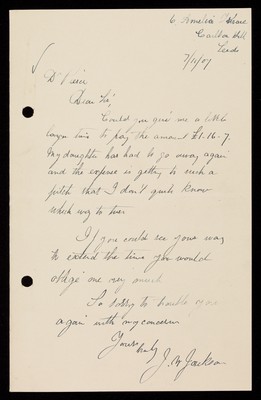 6 Amelia Terrace
Carlton Hill
Leeds
7/11/07
Dr
Dear Sir,
Could you give me a little
longer time to pay the amount £1.16-7.
My daughter has had to go away again
and the expense is getting to such a
pitch that I don't quite know
which way to turn
If you could see your way
to extend the time you would
oblige me very much
So sorry to trouble you
again with my concern
Yours
truly
J. W. Jackson